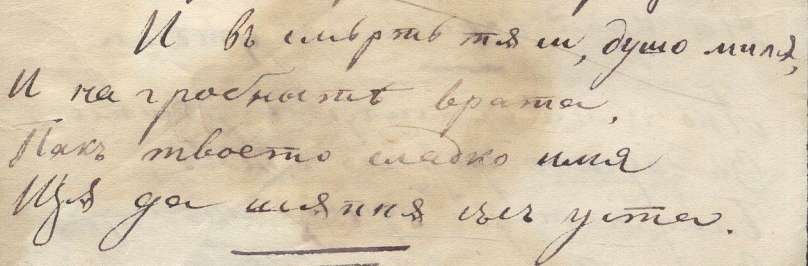 И въ смьртьтя ми, душо мила,
И на гробнытѣ врата,
Пакъ твоето сладко имя
Щя да шяпня уста.